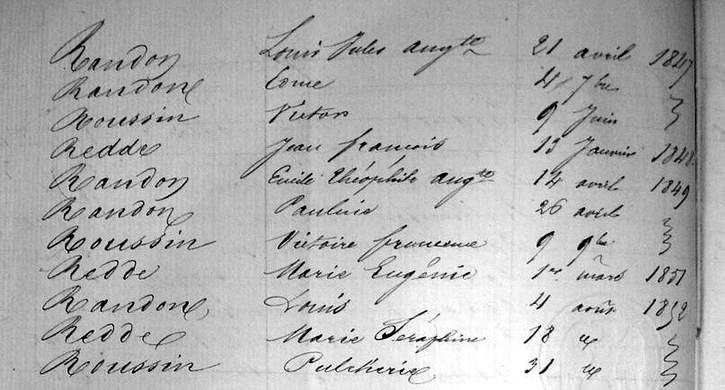 Randon Louis Jules augte 21 avril 1847
Randon Come 4 7bre }
Roussin Victor 9 Juin }
Redde Jean françois 13 Janvier 1848
Randon Emile Théophile augte 14 avril 1849
Randon Pauline 26 avril }
Roussin Victoire francoise 9 9bre }
Redde Marie Eugénie 1er mars 1851
Randon Louis 4 août 1852
Redde Marie Séraphine 18 }
Roussin Pulcherie 31 }